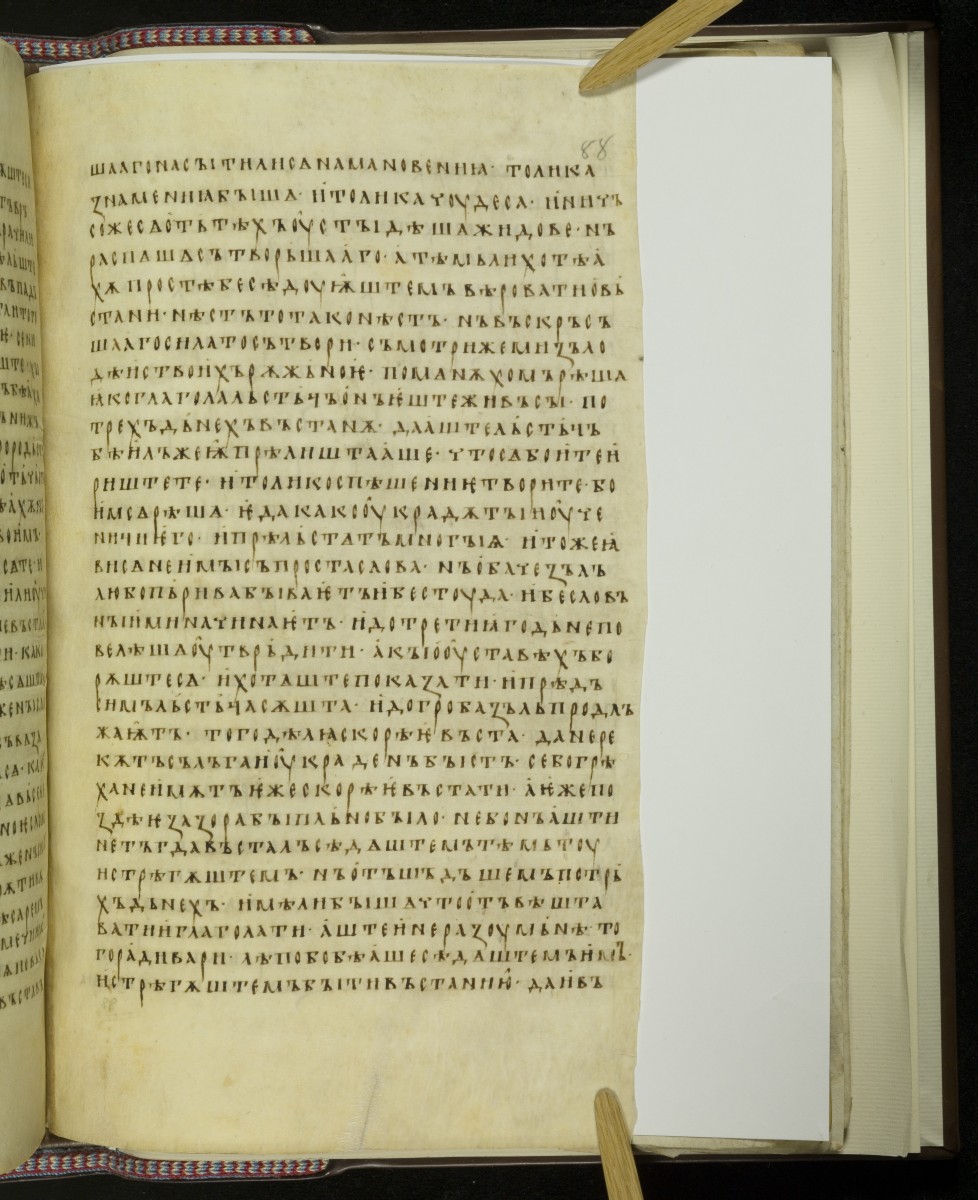 88
шааго насъітила иса намановениꙗ· толика
знамениꙗ бъіша· и҅ толика чоудеса· и҅ ничь
соже са о҅тъ тѣхъ оу҅стъідѣша жидове· нъ
распаша сътворьшааго· а тѣмь ли хотѣа҅
хѫ простѣ бесѣдоуѭштемъ вѣровати о҅вь
стани· нѣстъ то тако нѣстъ· нъ въскръсъ
шааго сила то сътвори· съмотри же ми зъло
дѣиство и҅хъ рѫжьноѥ· помѧнѫхомъ рѣша
ꙗко глагола льстьчъ о҅нъ ѥште живъ съі· по
трехъ дьнехъ въстанѫ· да аште льстьчъ
бѣ и҅ лъжеѭ прѣлиштааше· что са боите и҅
риштете· и҅ толико спѣшениѥ творите· бо
и҅мъ са рѣша· ѥда како оу҅крадѫтъ и҅ оу҅че
ничи ѥго· и҅ прѣльстатъ многъіѧ· и҅ тоже ꙗ
висане и҅мъі съ проста слова· нъ о҅баче зъль
любопьрива бъіваѥтъ и҅ бестоуда· и҅ бесловь
нъіи҅ми начинаѥтъ· и҅ до третиꙗго дьне по
велѣша оу҅твръдити· а҅къі о о҅уставѣхъ бо
рѫште са· и҅ хоташте показати· и҅ прѣдъ
симъ льстьча сѫшта· и҅ до гроба зъль продль
жаѭтъ· того дѣлꙗ скорѣѥ въста· да не ре
кѫтъ сълъга и҅ оу҅краденъ бъістъ· се бо грѣ
ха не и҅мѫтъ ѥже скорѣѥ въстати· а҅ ѥже по
здѣѥ зазора бъі пльно бъіло· не бо нъ а҅шти
не тъгда въсталъ сѣдаштемъ тѣмь тоу
и стрѣгѫштемъ· нъ о҅тъшьдъшемъ по трь
хъ дьнехъ· и҅мѣли бъіша что о҅тъвѣшта
вати и҅ глаголати· а҅ште и҅ не разоумьнѣ· то
го ра҅ди вари· лѣпо бо бѣа҅ше сѣда҅штемъ и҅мъ·
и стрѣгѫштемъ бъіти въстанию҅· да и҅ въ